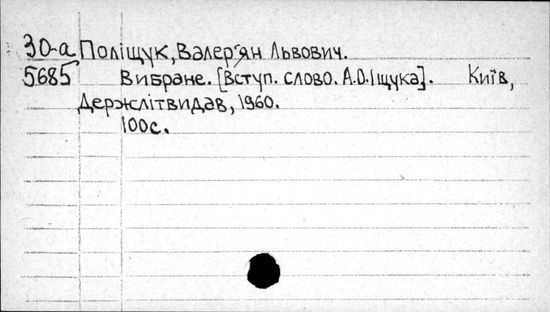 30-а Поліщук, Валер'ян Львович.
5685 Вибране. [Вступ. слово. А.О.Іщука]. Київ,
Держлітвидав, 1960.
100с.